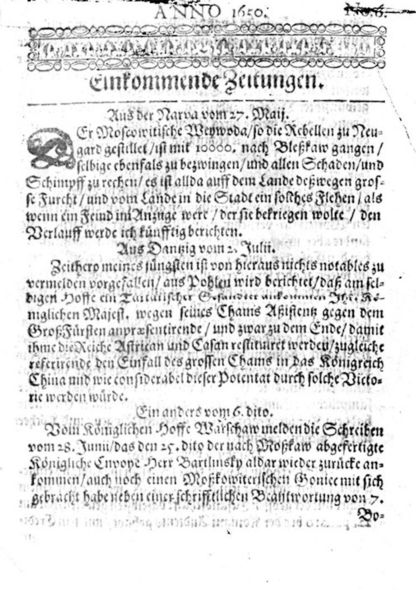 ANNO 1650. No. 6.
Einkommende Zeitungen.
Aus der Narva vom 27. Maij.
Er Moscowitische Weywoda/so die Rebellen zu Neu-
gard gestillet/ist mit 10000. nach Bleßkaw gangen/
selbige ebenfals zu bezwingen/und allen Schaden/und
Schimpff zu rechen/es ist allda auff dem Lande deßwegen gros-
se Furcht/und vom Lande in die Stadt ein solches Flehen/als
wenn ein Feind im Anzuge were/der sie bekriegen wolte/den
Verlauff werde ich künfftig berichten.
Aus Dantzig vom 2. Julii.
Zeithero meines jüngsten ist von hieraus nichts notables zu
vermelden vorgefallen/aus Pohlen wird berichtet/daß am sel-
bigen Hoffe ein Tartarischer Gesandter ankommen Ihr. Kö-
niglichen Majest. wegen seines Chams Assistentz gegen dem
GroßFürsten anpræsentirende/und zwar zu dem Ende/damit
ihme die Reiche Astrican und Casan restituiret werden/zugleiche
referirende den Einfall des grossen Chams in das Königreich
China und wie considerabel dieser Potentat durch solche Victo-
rie werden würde.
Ein anders vom 6. dito.
Vom Königlichen Hoffe Warschaw melden die Schreiben
vom 28. Junii/das den 25. dito der nach Moßkaw abgefertigte
Königliche Envoye Herr Bartlinsky aldar wieder zurücke an-
kommen/auch noch einen Moßkowiterischen Goniec mit sich
gebracht habe neben einer schrifftlichen Beantwortung von 7.
Bo-